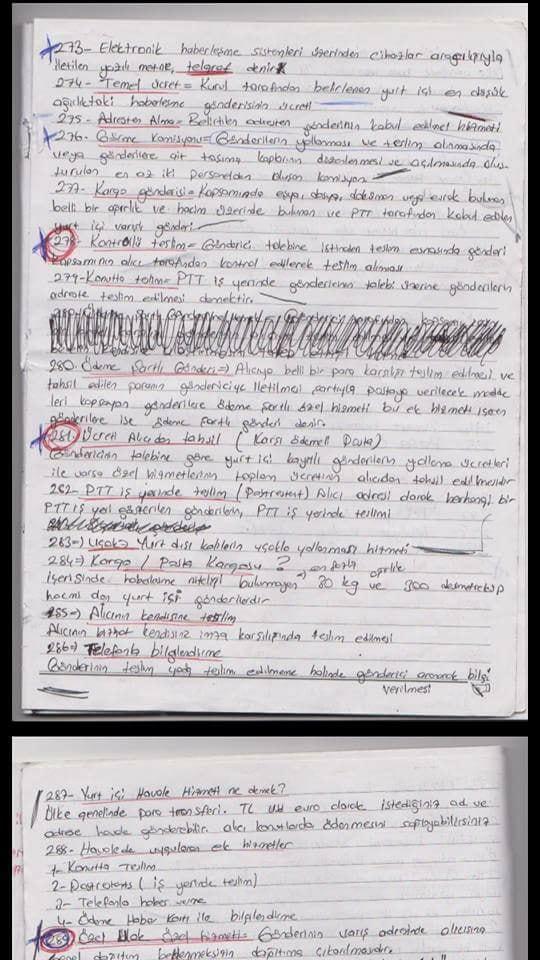 273- Elektronik haberleşme sistemleri üzerinden cihazlar aracılığıyla
iletilen yazılı metne, telgraf denir
274- Temel ücret = Kurul tarafından belirlenen yurt içi en düşük
ağırlıktaki haberleşme gönderisinin ücreti
275- Adresten Alma = Belirtilen adresten gönderinin kabul edilmesi hizmeti
276- Görme komisyonu = Gönderilerin yollanması ve teslim alınmasında
veya gönderilere ait taşıma kaplarının düzenlenmesi ve açılmasında oluş-
turulan en az iki personelden oluşan komisyon
277- Kargo gönderisi = Kapsamında eşya, dosya, doküman veya evrak bulunan
belli bir ağırlık ve hacim üzerinde bulunan ve PTT tarafından kabul edilen
yurt içi varışlı gönderi
278- Kontrollü teslim = Gönderici talebine istinaden teslim esnasında gönderi
kapsamının alıcı tarafından kontrol edilerek teslim alınması
279- Konutta teslim = PTT iş yerinde göndericinin talebi üzerine gönderilerin
adreste teslim edilmesi demektir.
280- Ödeme Şartlı Gönderi =) Alıcıya belli bir para karşılığı teslim edilmesi ve
tahsil edilen paranın göndericiye iletilmesi şartıyla postaya verilecek madde
leri kapsayan gönderilere ödeme şartlı özel hizmeti bu ek hizmeti
gönderilere ise ödeme şartlı gönderi denir
281- Ücreti Alıcıdan tahsil ( Karşı ödemeli Posta)
Göndericinin talebine göre yurt içi kayıtlı gönderilerin yollama ücretleri
ile varsa özel hizmetlerinin toplam ücretinin alıcıdan tahsil edilmesidir
282- PTT iş yerinde teslim (Postrestant) Alıcı adresi olarak herhangi bir
PTT iş yeri gösterilen gönderilerin, PTT iş yerinde teslimi
283=) Uçakla Yurt dışı kolilerin uçakla yollanması hizmeti
284=) Kargo / Posta Kargosu ? en fazla ağırlık
İçerisinde haberleşme niteliği bulunmayan 30 kg ve 300 desimetreküp
hacmi olan yurt içi gönderilerdir
285=) Alıcının kendisine teslim
Alıcının bizzat kendisine imza karşılığında teslim edilmesi
286=) Telefonla bilgilendirme
Gönderinin teslim yada teslim edilmeme halinde gönderici aranarak bilgi
verilmesi
287- Yurt içi Havale Hizmeti ne demek?
Ülke genelinde para transferi. TL euro olarak istediğiniz ad ve
adrese havale gönderebilir. alıcı konutlarda ödenmesini sağlayabilirsiniz
288- Havalede uygulanan ek hizmetler
1- Konutta Teslim
2- Postrestant ( iş yerinde teslim)
3- Telefonla haber verme
4- Ödeme Haber Kartı ile bilgilendirme
289 Özel Ulak özel hizmeti = Gönderinin varış adresinde alıcısına
genel dağıtım beklenmeksizin dağıtıma çıkarılmasıdır